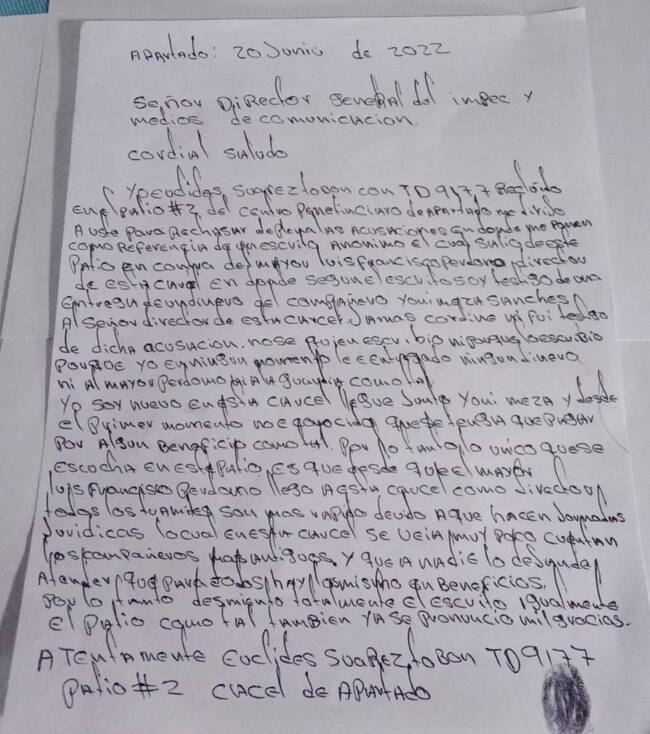 APARtado: 20 Junio de 2022
Señor DiRector General del impec y
medios de comunicacion.
cordial saludo
Yo euclides Suarez tobon con TD 9177 Recluido
en el patio #2 del centro Penetinciaro de Apartado me dirijo
A uste para Rechasar de plena las acusaciones en donde me ponen
como Referencia de un escrito Anonimo el cual salio de este
Patio en contra del mayor luis francisco perdomo, director
de esta carcel en donde segun el escrito soy testigo de una
entrega de un dinero del compañero Youi meza Sanches
Al Señor director de esta carcel. Jamas cordine ni fui testigo
de dicha acusacion. no se quien escribio ni porque lo escribio
porque yo en ningun momento le e entregado ningun dinero
ni al mayor perdomo ni a la guardia como tal.
Yo soy nuevo en esta carcel llegue junto Youi meza y desde
el primer momento no e conocido que se tenga que pagar
por algun Beneficio como tal. Por lo tanto lo unico que se
escocha en este patio, es que desde que el mayor
luis francisco perdomo llego a esta carcel como director
todos los tramites son mas rapido devido a que hacen jornadas
Juridicas lo cual en esta carcel se veia muy poco cuentan
los compañeros mas antiguos. y que a nadie lo deja de
Atender, que para todos hay lo mismo en beneficios.
por lo tanto desmiento totalmente el escrito igualmente
el patio como tal tambien ya se pronuncio mil gracias.
ATentamente Euclides Suarez toBon TD 9177
Patio #2 cacel de APartado